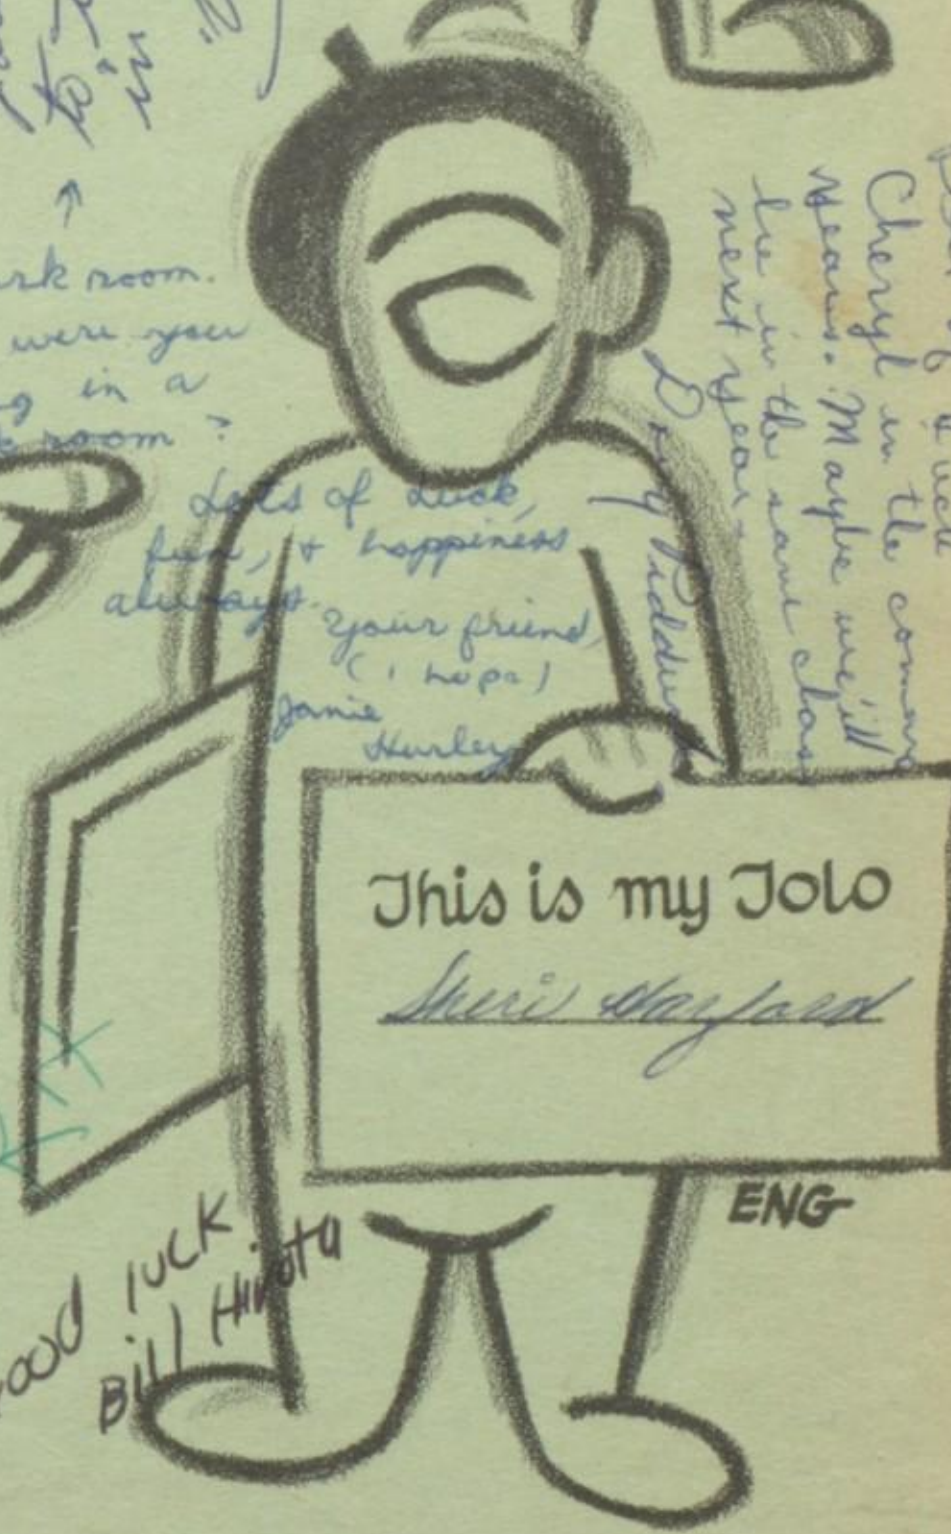 rk room.
were you
in a
room?
Lots of Luck,
fun, & happiness
always.
Your friend,
(i hope)
Janie
Hurley
Cheryl in the coming
years. Maybe we'll
be in the same class
next year.
This is my Tolo
Sheri Hayford
ENG
Good luck
Bill Hirota